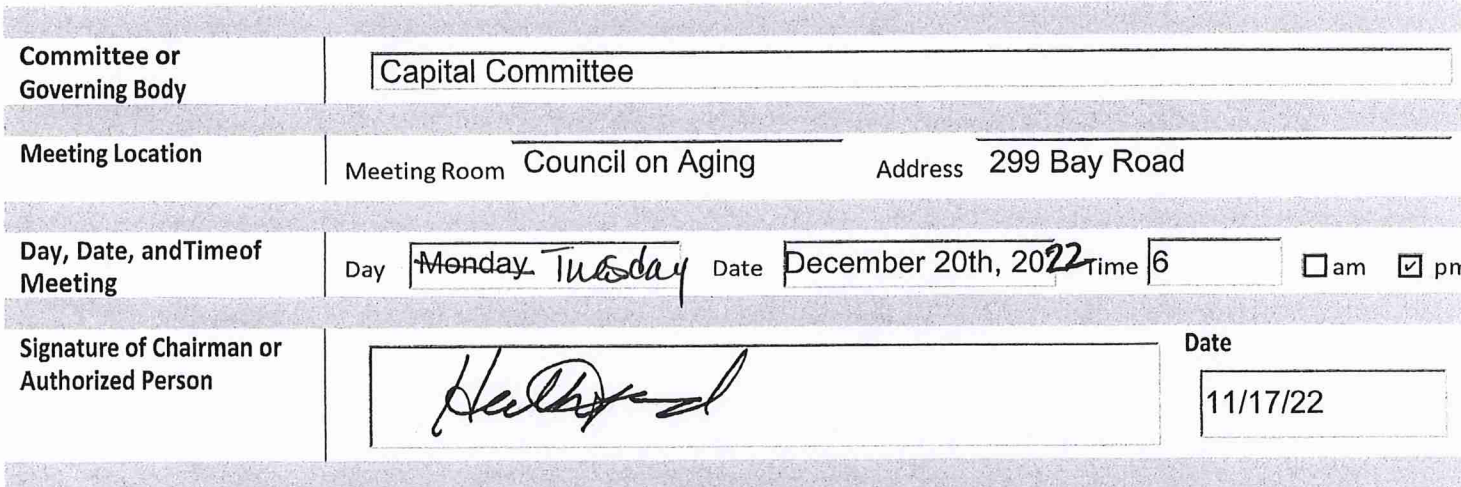 Committee or
Governing Body
Capital Committee
Meeting Location
Meeting Room Council on Aging Address 299 Bay Road
Day, Date, andTimeof
Meeting
Day Monday Tuesday Date December 20th, 2022 Time 6 am pm
Signature of Chairman or
Authorized Person
Date
11/17/22